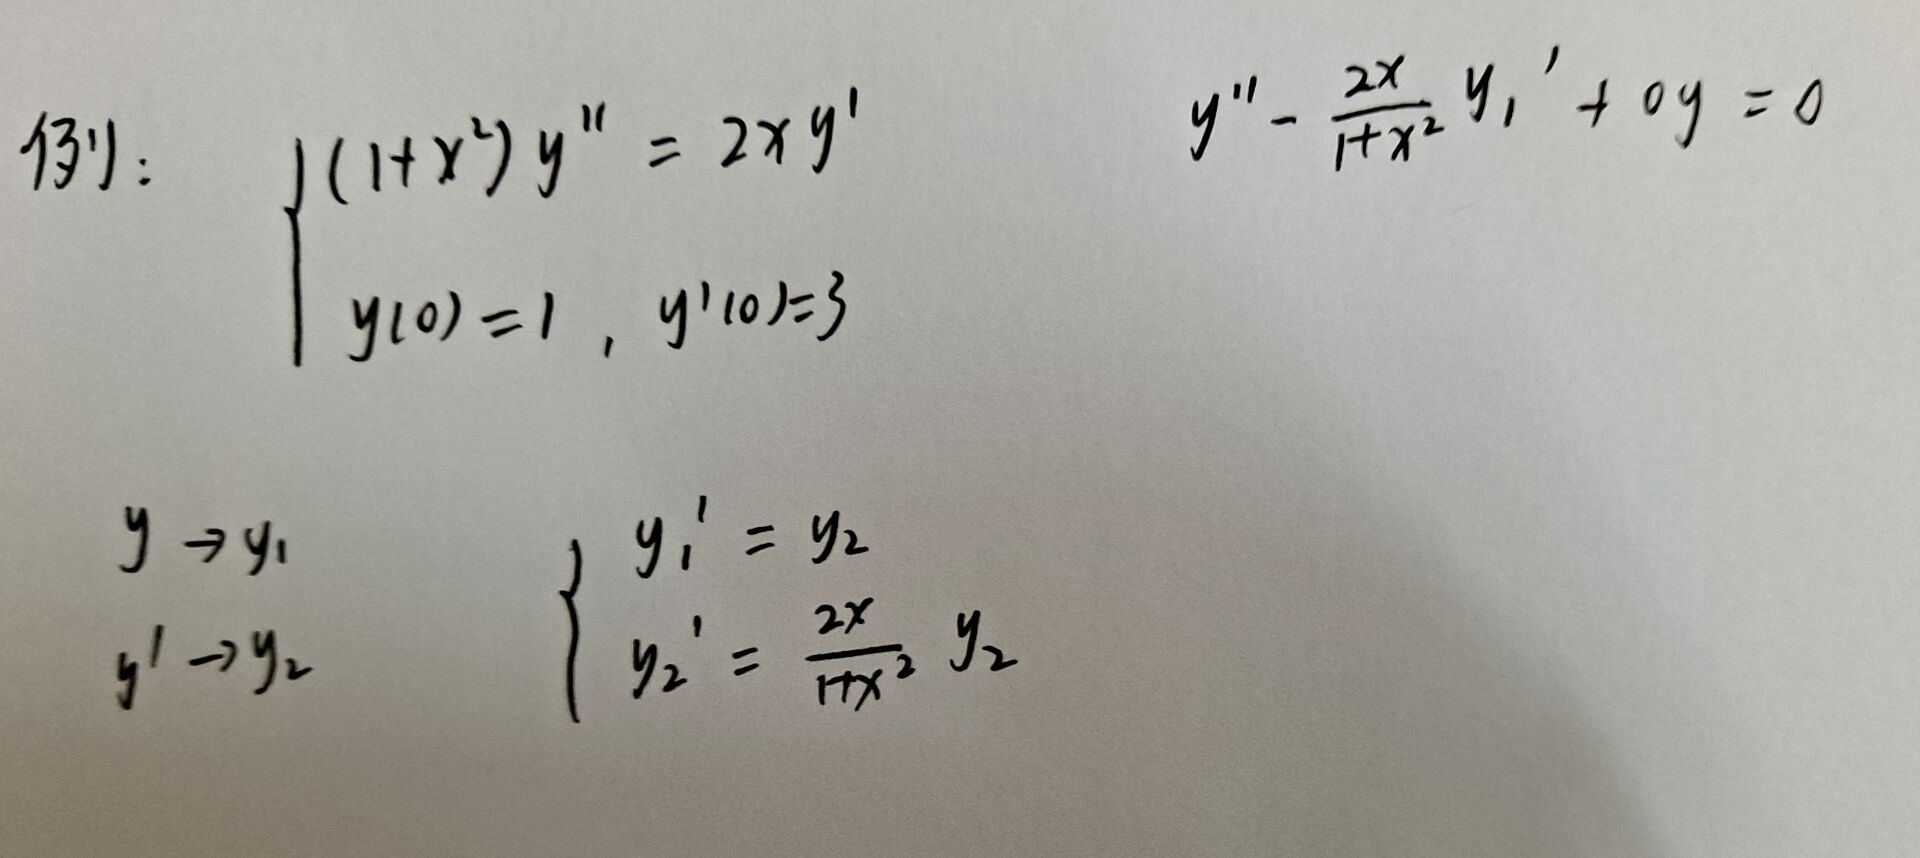 例: (1+x²) y'' = 2x y'
y(0) = 1 , y'(0)=3
y'' - 2x/(1+x²) y₁' + 0y = 0
y → y₁
y' → y₂
y₁' = y₂
y₂' = 2x/(1+x²) y₂